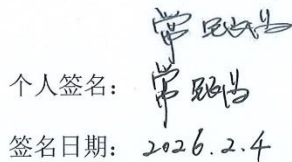 常
个人签名：常
签名日期：2026.2.4